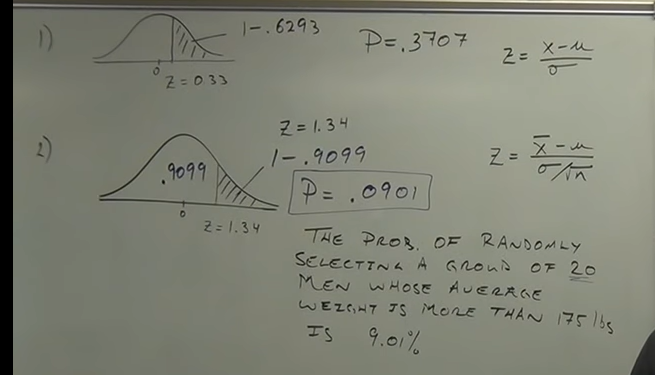 1)
1-.6293
P=.3707
z = x-μ/σ
0
z=0.33
2)
z=1.34
.9099
1-.9099
P= .0901
z = x̄-μ/σ/√n
0
z=1.34
THE PROB. OF RANDOMLY
SELECTING A GROUP OF 20
MEN WHOSE AVERAGE
WEIGHT IS MORE THAN 175 lbs
IS 9.01%